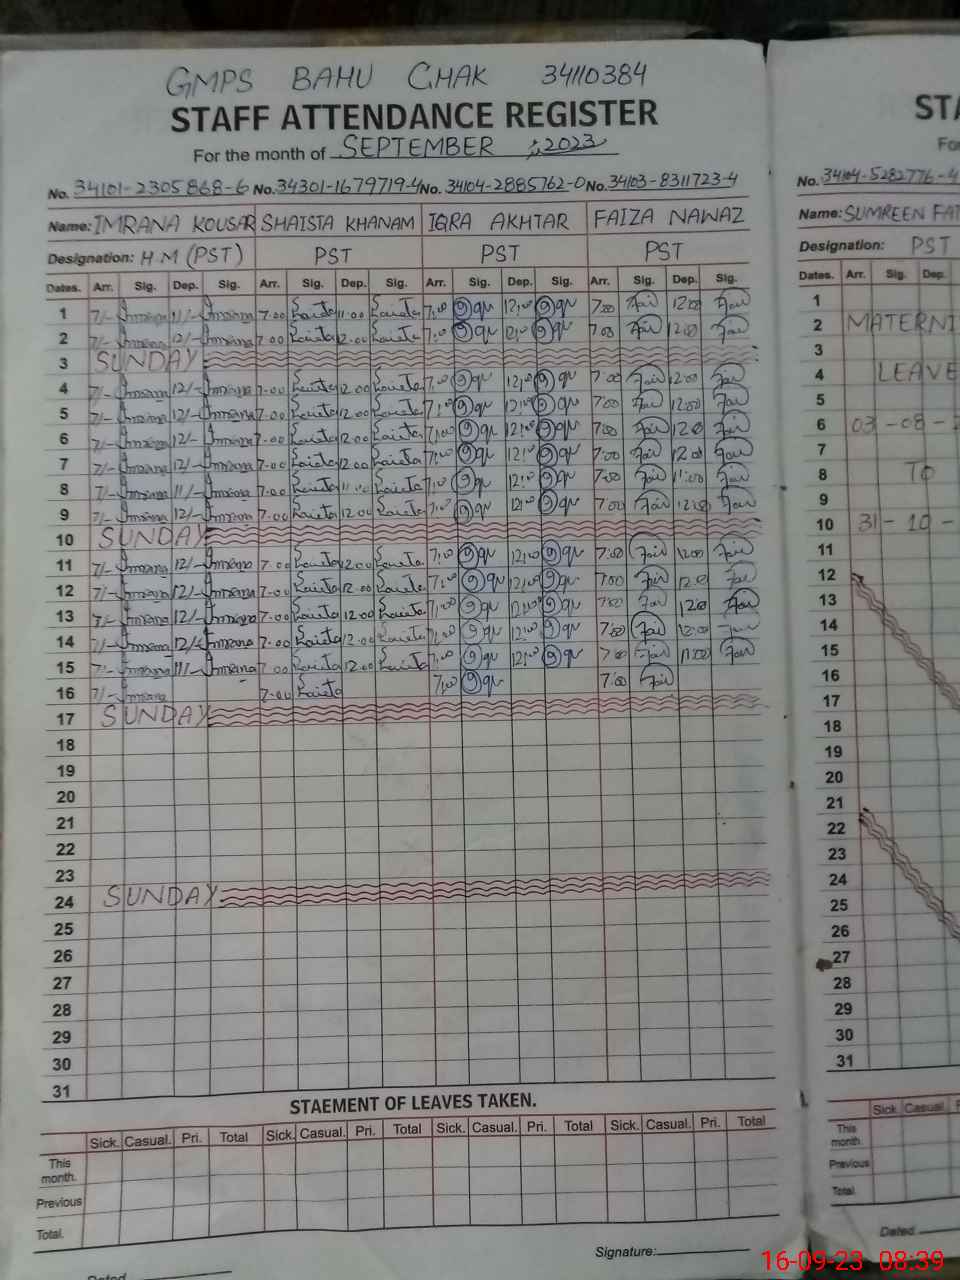 GMPS BAHU CHAK 34110384
STAFF ATTENDANCE REGISTER
For the month of SEPTEMBER ;2023
No. 34101-2305868-6 No. 34301-1679719-4 No. 34104-2885762-0 No. 34103-8311723-4
Name: IMRANA KOUSAR SHAISTA KHANAM IQRA AKHTAR FAIZA NAWAZ
Designation: H.M (PST) PST PST PST
Dates. Arr. Sig. Dep. Sig. Arr. Sig. Dep. Sig. Arr. Sig. Dep. Sig. Arr. Sig. Dep. Sig.
1 7/- Imrana 11/- Imrana 7.00 11.00 7,00 12,00 7:00 12:00
2 7/- Imrana 12/- Imrana 7.00 12.00 7,00 12,00 7:00 12:00
3 SUNDAY
4 7/- Imrana 12/- Imrana 7.00 12.00 7,00 12,00 7:00 12:00
5 7/- Imrana 12/- Imrana 7.00 12.00 7,00 12,00 7:00 12:00
6 7/- Imrana 12/- Imrana 7.00 12.00 7,00 12,00 7:00 12:00
7 7/- Imrana 12/- Imrana 7.00 12.00 7,00 12,00 7:00 12:00
8 7/- Imrana 11/- Imrana 7.00 11.00 7,00 12,00 7:00 11:00
9 7/- Imrana 12/- Imrana 7.00 12.00 7,00 12,00 7:00 12:00
10 SUNDAY
11 7/- Imrana 12/- Imrana 7.00 12.00 7,00 12,00 7:00 12:00
12 7/- Imrana 12/- Imrana 7.00 12.00 7,00 12,00 7:00 12:00
13 7/- Imrana 12/- Imrana 7.00 12.00 7,00 12,00 7:00 12:00
14 7/- Imrana 12/- Imrana 7.00 12.00 7,00 12,00 7:00 12:00
15 7/- Imrana 11/- Imrana 7.00 12.00 7,00 12,00 7:00 11:00
16 7/- Imrana 7.00 7,00 7:00
17 SUNDAY
18
19
20
21
22
23
24 SUNDAY
25
26
27
28
29
30
31
STAEMENT OF LEAVES TAKEN.
Sick. Casual. Pri. Total Sick. Casual. Pri. Total Sick. Casual. Pri. Total Sick. Casual. Pri. Total
This month.
Previous
Total.
Signature:
Dated
No. 34104-5282776-4
Name: SUMREEN
Designation: PST
Dates. Arr. Sig. Dep.
1
2 MATERNI
3
4 LEAVE
5
6 03-08-
7
8 TO
9
10 31-10-
11
12
13
14
15
16
17
18
19
20
21
22
23
24
25
26
27
28
29
30
31
Sick. Casual.
This month.
Previous
Total.
Dated
16-09-23 08:39